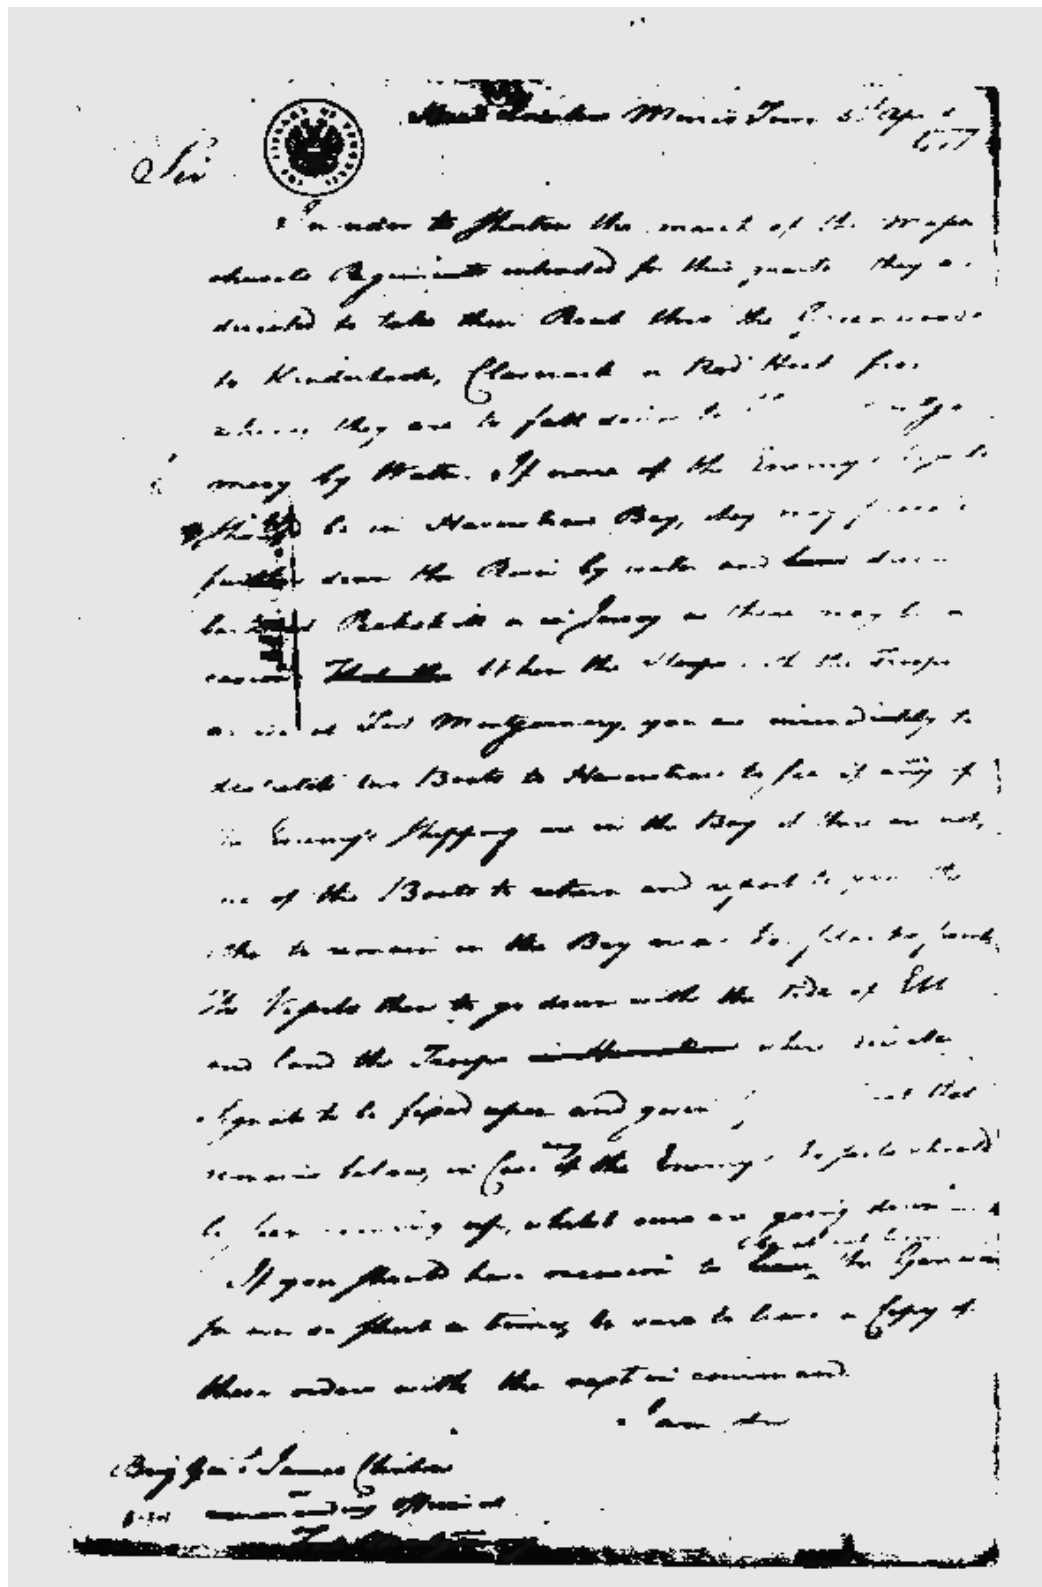 Head Quarters Morris Town 5th Apr
Sir
LIBRARY OF CONGRESS
In order to shorten the march of the Massa
chusets Regiments intended for this quarter they are
directed to take their Rout thro the Greenwoods
to Kinderhook, Claverack or Red Hook from
whence they are to fall down to
mery by Water. If none of the Enemy's Vessels
be in Haverstraw Bay, they may proceed
further down the River by water and land down
Peekskill or in Jersey as there may be oc
casion When the Sloops with the Troops
arrive at Fort Montgomery, you are immediately to
dispatch two Boats to Haverstraw to see if any of
the Enemy's Shipping are in the Bay if there are not,
one of the Boats to return and report to you the
other to remain in the Bay
The Vessels then to go down with the tide of Ebb
and land the Troops when
Signals to be fixed upon and given that
remains below, in Case any of the Enemy's Vessels should
be seen coming up, whilst ours are going down
be at
If you should have occasion to the Garrison
for ever so short a time, be sure to leave a Copy of
these orders with the next in command.
I am Sir
Brig Genl James Clinton
commanding Officer at
Fort Montgomery